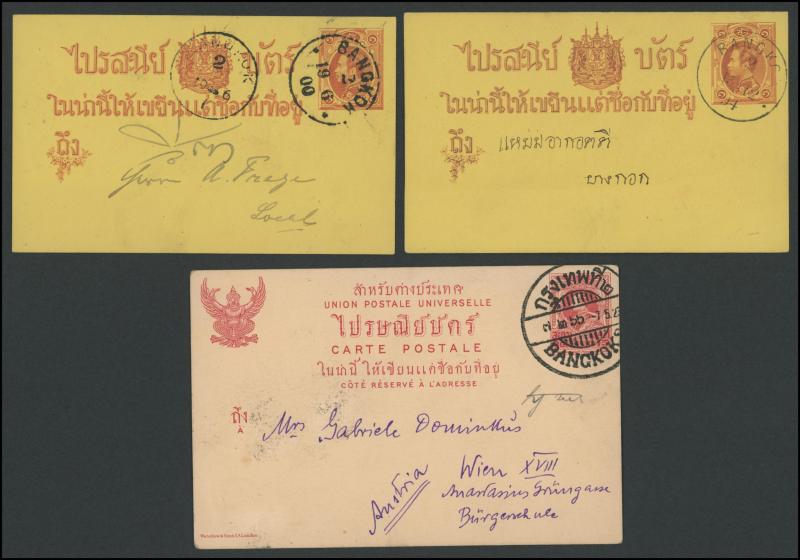 ไปรสนีย บัตร์
ในน่านี้ให้เขียนแต่ชื่อกับที่อยู่
ถึง
BANGKOK
2
BANGKOK
A. Frage
Local
ไปรสนีย บัตร์
ในน่านี้ให้เขียนแต่ชื่อกับที่อยู่
ถึง
บางกอก
สำหรับต่างประเทศ
UNION POSTALE UNIVERSELLE
ไปรษณีย์บัตร์
CARTE POSTALE
ในน่านี้ ให้เขียนแต่ชื่อกับที่อยู่
CÔTÉ RÉSERVÉ À L'ADRESSE
กรุงเทพฯที่๒
BANGKOK 2
ถึง
A
Mrs Gabriele Dominkus
Wien XVIII
Anastasius Grüngasse
Bürgerschule
Austria
Waterlow & Sons Ld. London